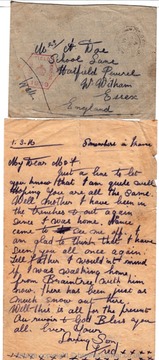 Mrs A Doe
School Lane
Hatfield Peverel
Nr Witham
Essex
England
1.3.16 Somewhere in France
My Dear Mother
Just a line to let
you know that I am quite well
Hoping you are all the same
Well Mother I have been in
the trenches & out again
since I was home
came to see me off I
am glad to think that I have
seen you all once again
Tell Father I would not mind
if I was walking home
from Braintree with him
now, there has been just as
much snow out here,
Well this is all for the present
Au revoir & God Bless you
all. Ever Your
Loving Son
Fred